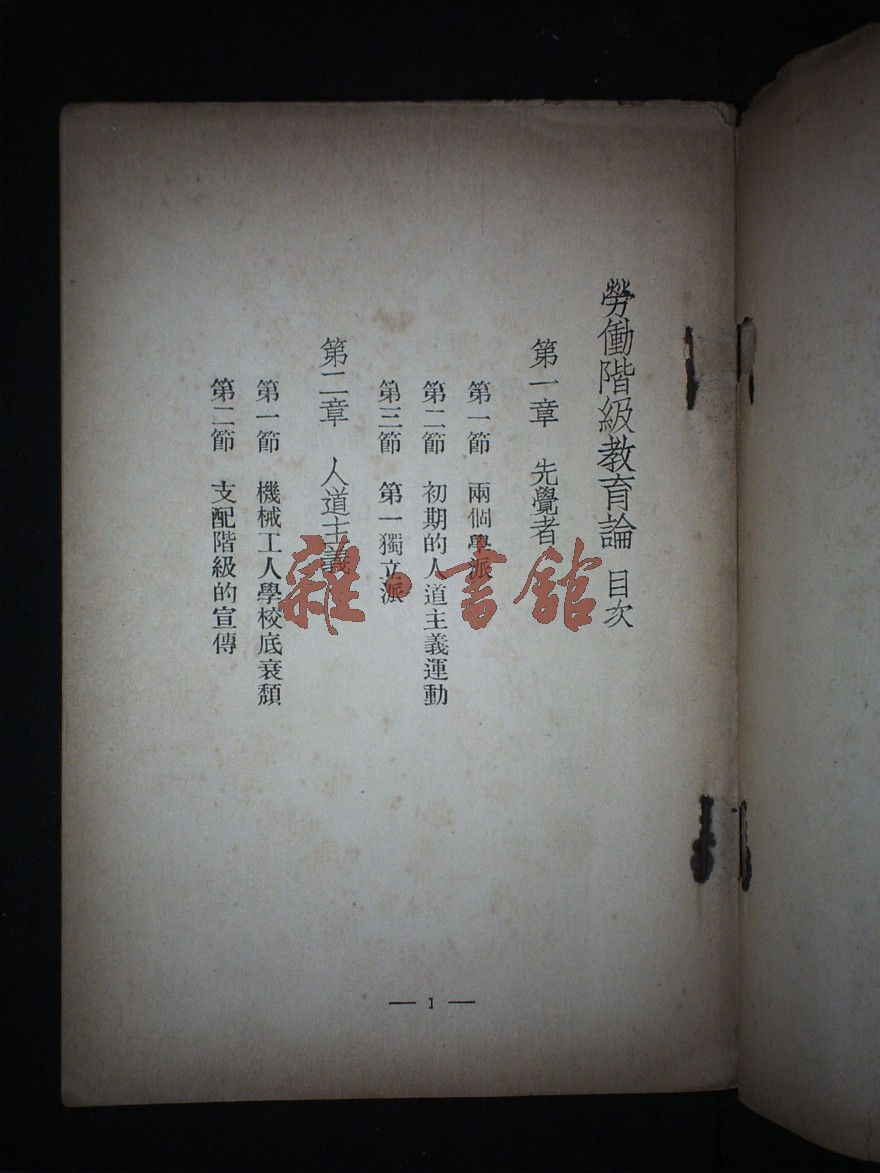 勞働階級教育論 目次
第一章 先覺者
第一節 兩個學派
第二節 初期的人道主義運動
第三節 第一獨立派
第二章 人道主義
第一節 機械工人學校底衰頹
第二節 支配階級的宣傳
— 1 —
雜·書館